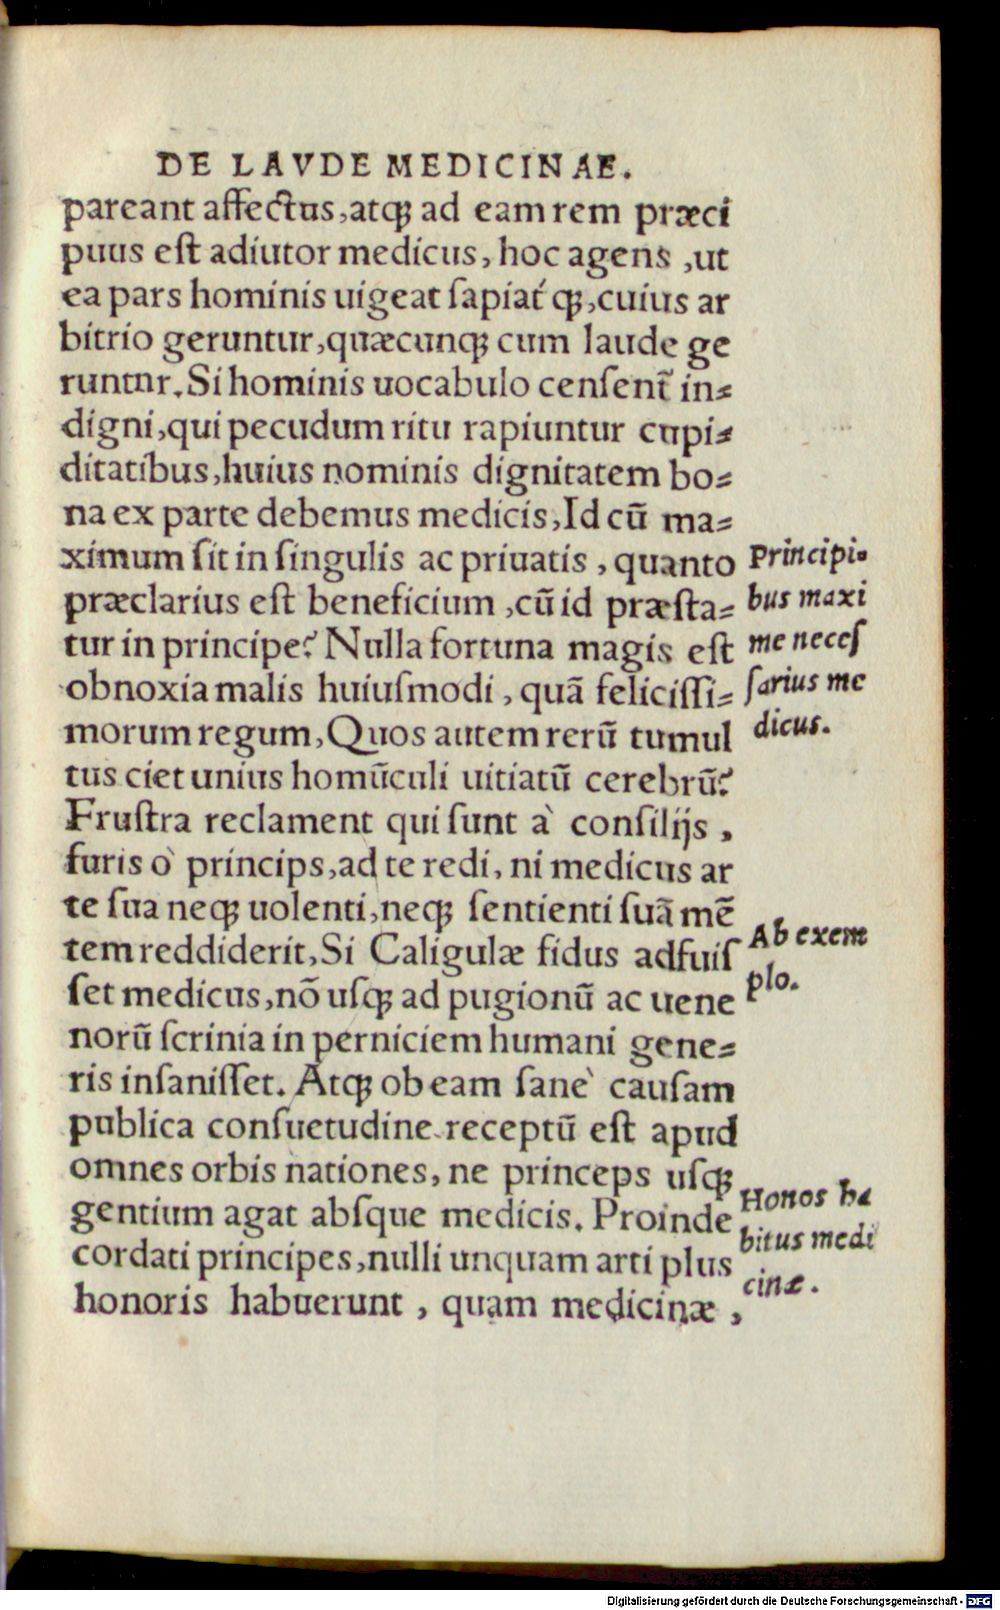 DE LAVDE MEDICINAE.
pareant affectus, atq; ad eam rem præci
puus est adiutor medicus, hoc agens, ut
ea pars hominis uigeat sapiat́ q;, cuius ar
bitrio geruntur, quæcunq; cum laude ge
runtur. Si hominis uocabulo censent̃ in=
digni, qui pecudum ritu rapiuntur cupi=
ditatibus, huius nominis dignitatem bo=
na ex parte debemus medicis, Id cũ ma=
ximum sit in singulis ac priuatis, quanto
præclarius est beneficium, cũ id præsta=
tur in principe? Nulla fortuna magis est
obnoxia malis huiusmodi, quã felicissi=
morum regum, Quos autem rerũ tumul
tus ciet unius homũculi uitiatũ cerebrũ?
Frustra reclament qui sunt à consilijs,
furis ò princips, ad te redi, ni medicus ar
te sua neq; uolenti, neq; sentienti suã mẽ
tem reddiderit, Si Caligulæ fidus adfuis
set medicus, nõ usq; ad pugionũ ac uene
norũ scrinia in perniciem humani gene=
ris insanisset. Atq; ob eam sanè causam
publica consuetudine receptũ est apud
omnes orbis nationes, ne princeps usq;
gentium agat absque medicis. Proinde
cordati principes, nulli unquam arti plus
honoris habuerunt, quam medicinæ,
Principi=
bus maxi
me neces
sarius me
dicus.
Ab exem
plo.
Honos ha
bitus medi
cinæ.
Digitalisierung gefördert durch die Deutsche Forschungsgemeinschaft - DFG